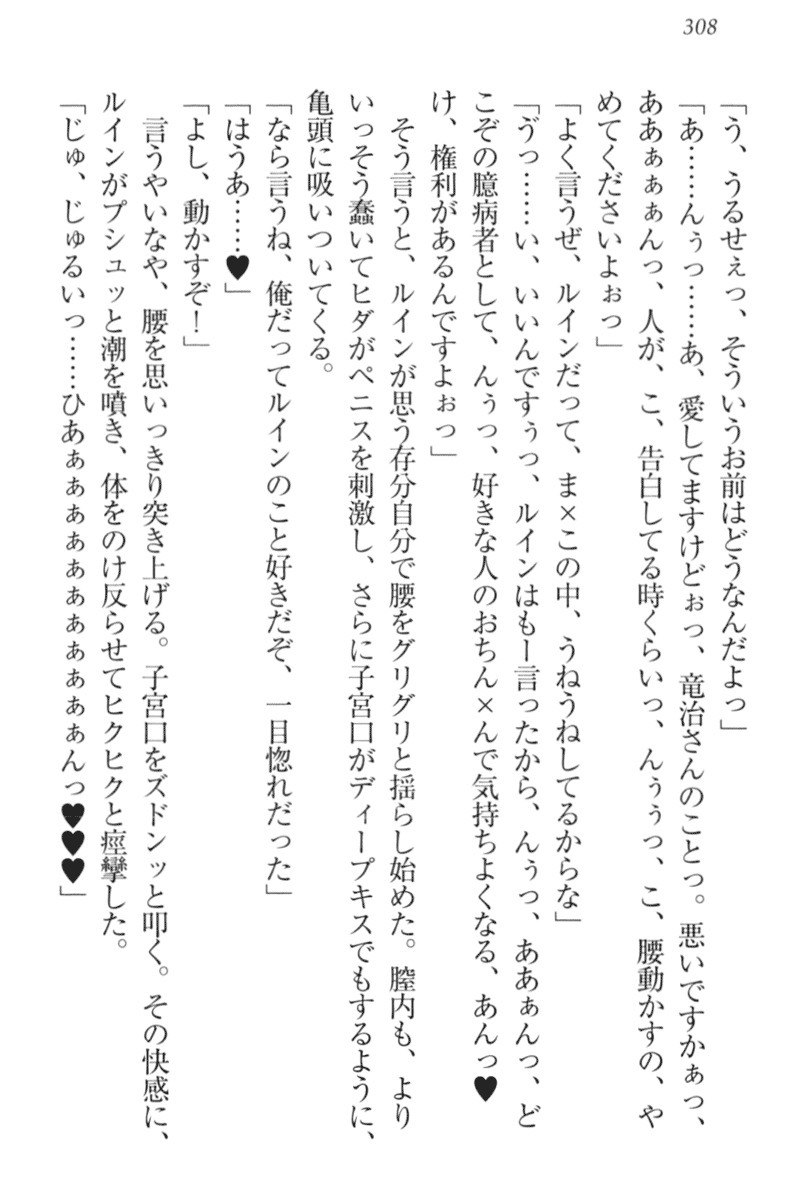 308
「う、うるせぇっ、そういうお前はどうなんだよっ」
「あ……んぅっ……あ、愛してますけどぉっ、竜治さんのことっ。悪いですかぁっ、
ああぁぁぁんっ、人が、こ、告白してる時くらいっ、んぅぅっ、こ、腰動かすの、や
めてくださいよぉっ」
「よく言うぜ、ルインだって、ま×この中、うねうねしてるからな」
「ゔっ……い、いいんですぅっ、ルインはもー言ったから、んぅっ、ああぁんっ、ど
こぞの臆病者として、んぅっ、好きな人のおちん×んで気持ちよくなる、あんっ♥
け、権利があるんですよぉっ」
そう言うと、ルインが思う存分自分で腰をグリグリと揺らし始めた。膣内も、より
いっそう蠢いてヒダがペニスを刺激し、さらに子宮口がディープキスでもするように、
亀頭に吸いついてくる。
「なら言うね、俺だってルインのこと好きだぞ、一目惚れだった」
「はうあ……♥」
「よし、動かすぞ！」
言うやいなや、腰を思いっきり突き上げる。子宮口をズドンッと叩く。その快感に、
ルインがプシュッと潮を噴き、体をのけ反らせてヒクヒクと痙攣した。
「じゅ、じゅるいっ……ひあぁぁぁぁぁぁぁぁぁぁんっ♥♥♥」